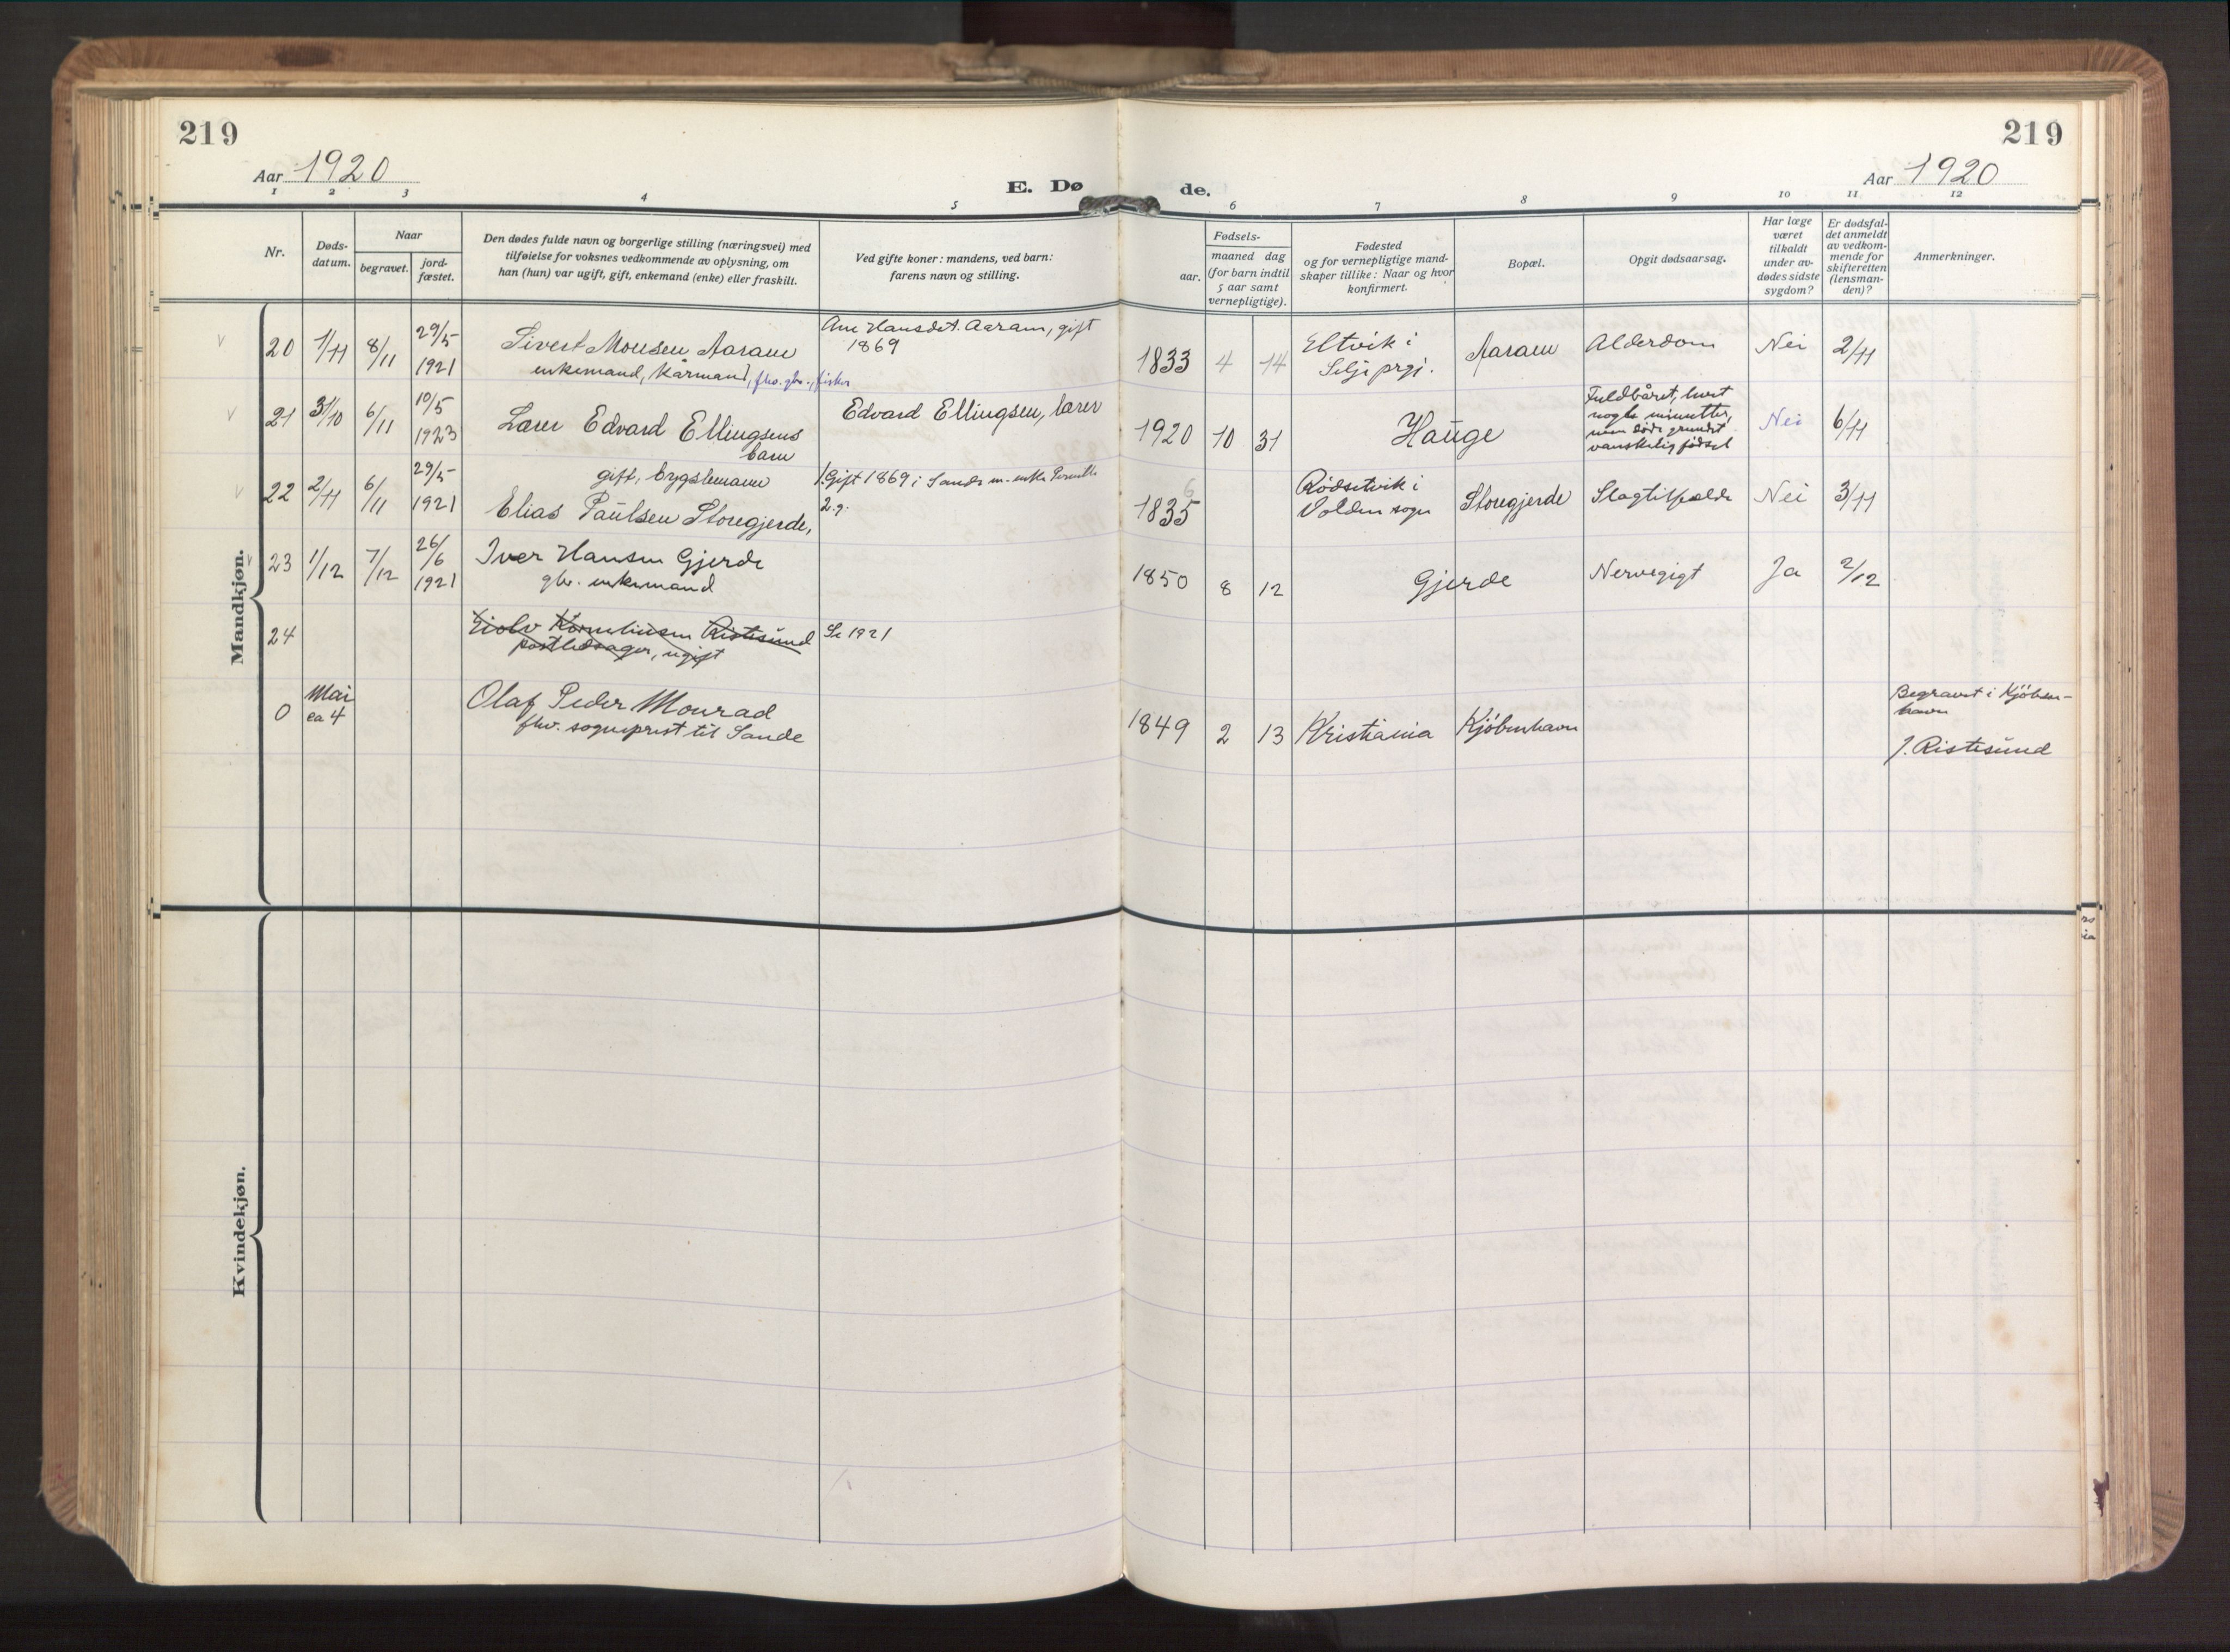 219
219
Aar 1920
E. Dø de.
Aar 1920
1 2 3 4 5 6 7 8 9 10 11 12
Nr.
Døds-
datum.
Naar
begravet.
jord-
fæstet.
Den dødes fulde navn og borgerlige stilling (næringsvei) med
tilføielse for voksnes vedkommende av oplysning, om
han (hun) var ugift, gift, enkemand (enke) eller fraskilt.
Ved gifte koner: mandens, ved barn:
farens navn og stilling.
Fødsels-
aar.
maaned dag
(for barn indtil
5 aar samt
vernepligtige).
Fødested
og for vernepligtige mand-
skaper tillike: Naar og hvor
konfirmert.
Bopæl.
Opgit dødsaarsag.
Har læge
været
tilkaldt
under av-
dødes sidste
sygdom?
Er dødsfal-
det anmeldt
av vedkom-
mende for
skifteretten
(lensman-
den)?
Anmerkninger.
Mandkjøn.
20 1/11 8/11 29/5 1921
Sivert Monsen Aaram
enkemand, kårmand, fhv. gbr., fisker
Ane Hansdet. Aaram, gift
1869
1833 4 14
Eltvik i
Selje prgj.
Aaram
Alderdom
Nei
2/11
21 31/10 6/11 10/5 1923
Lærer Edvard Ellingsens
barn
Edvard Ellingsen, lærer
1920 10 31
Hauge
Fuldbåret, levet
nogle minutter,
men døde grundet
vanskelig fødsel
Nei
6/11
22 2/11 6/11 29/5 1921
gift, bygslemann
Elias Paulsen Storegjerde,
1. Gift 1869 i Sande m. enke Pernille
2. g.
1835 6
Rödsetvik i
Volden sogn
Storegjerde
Slagtilfælde
Nei
3/11
23 1/12 7/12 26/6 1921
Iver Hansen Gjerde
gbr. enkemand
1850 8 12
Gjerde
Nervegigt
Ja
2/12
24
Eiolv Korneliusen Ristesund
postbedrager, ugift
Se 1921
0 Mai
ca 4
Olaf Peder Monrad
fhv. sogneprest til Sande
1849 2 13
Kristiania
Kjöbenhavn
Begravet i Kjöben-
havn
J. Ristesund
Kvindekjøn.